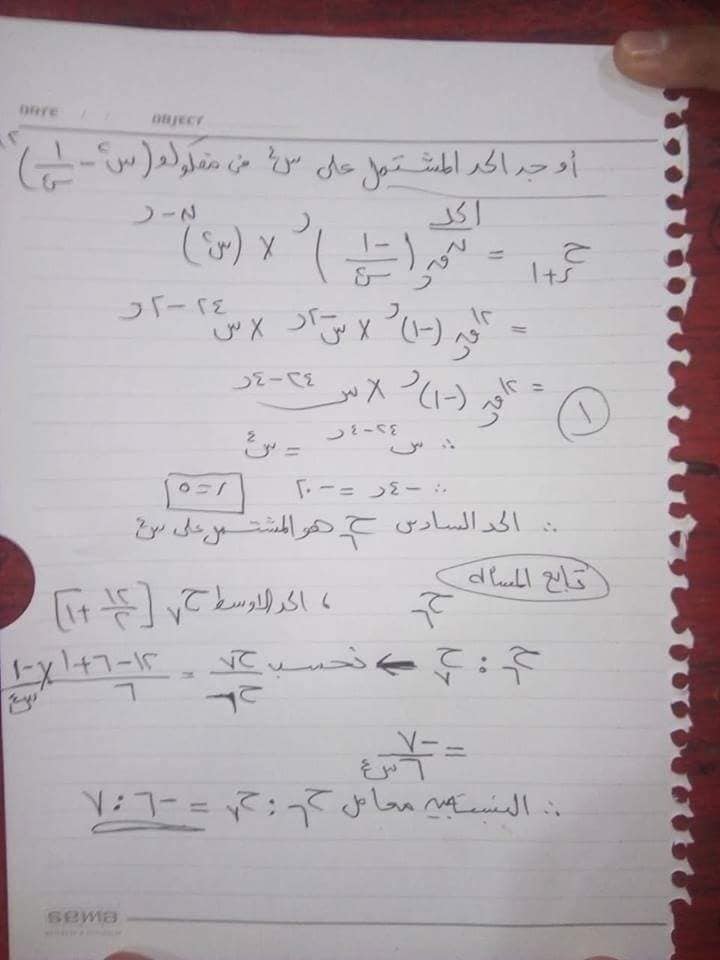 DATE / / OBJECT
أوجد الحد المشتمل على س٤ من مفكوك (س٢ − ١/س٢)١٢
الحد
ح ر+١ = ن ق ر (−١/س٢)ر × (س٢)ن−ر
= ١٢ ق ر (−١)ر × س−٢ر × س٢٤−٢ر
= ١٢ ق ر (−١)ر × س٢٤−٤ر ①
∴ س٢٤−٤ر = س٤
∴ −٤ر = −٢٠ ر = ٥
∴ الحد السادس ح٦ هو المشتمل على س٤
تابع المسألة
ح٦ ، الحد الاوسط ح٧ [١٢/٢ + ١]
ح٦ : ح٧ ← نحسب ح٧/ح٦ = ١٢−٦+١/٦ × −١/س٤
= −٧/٦س٤
∴ النسبة بين معامل ح٦ : ح٧ = −٦ : ٧
sema